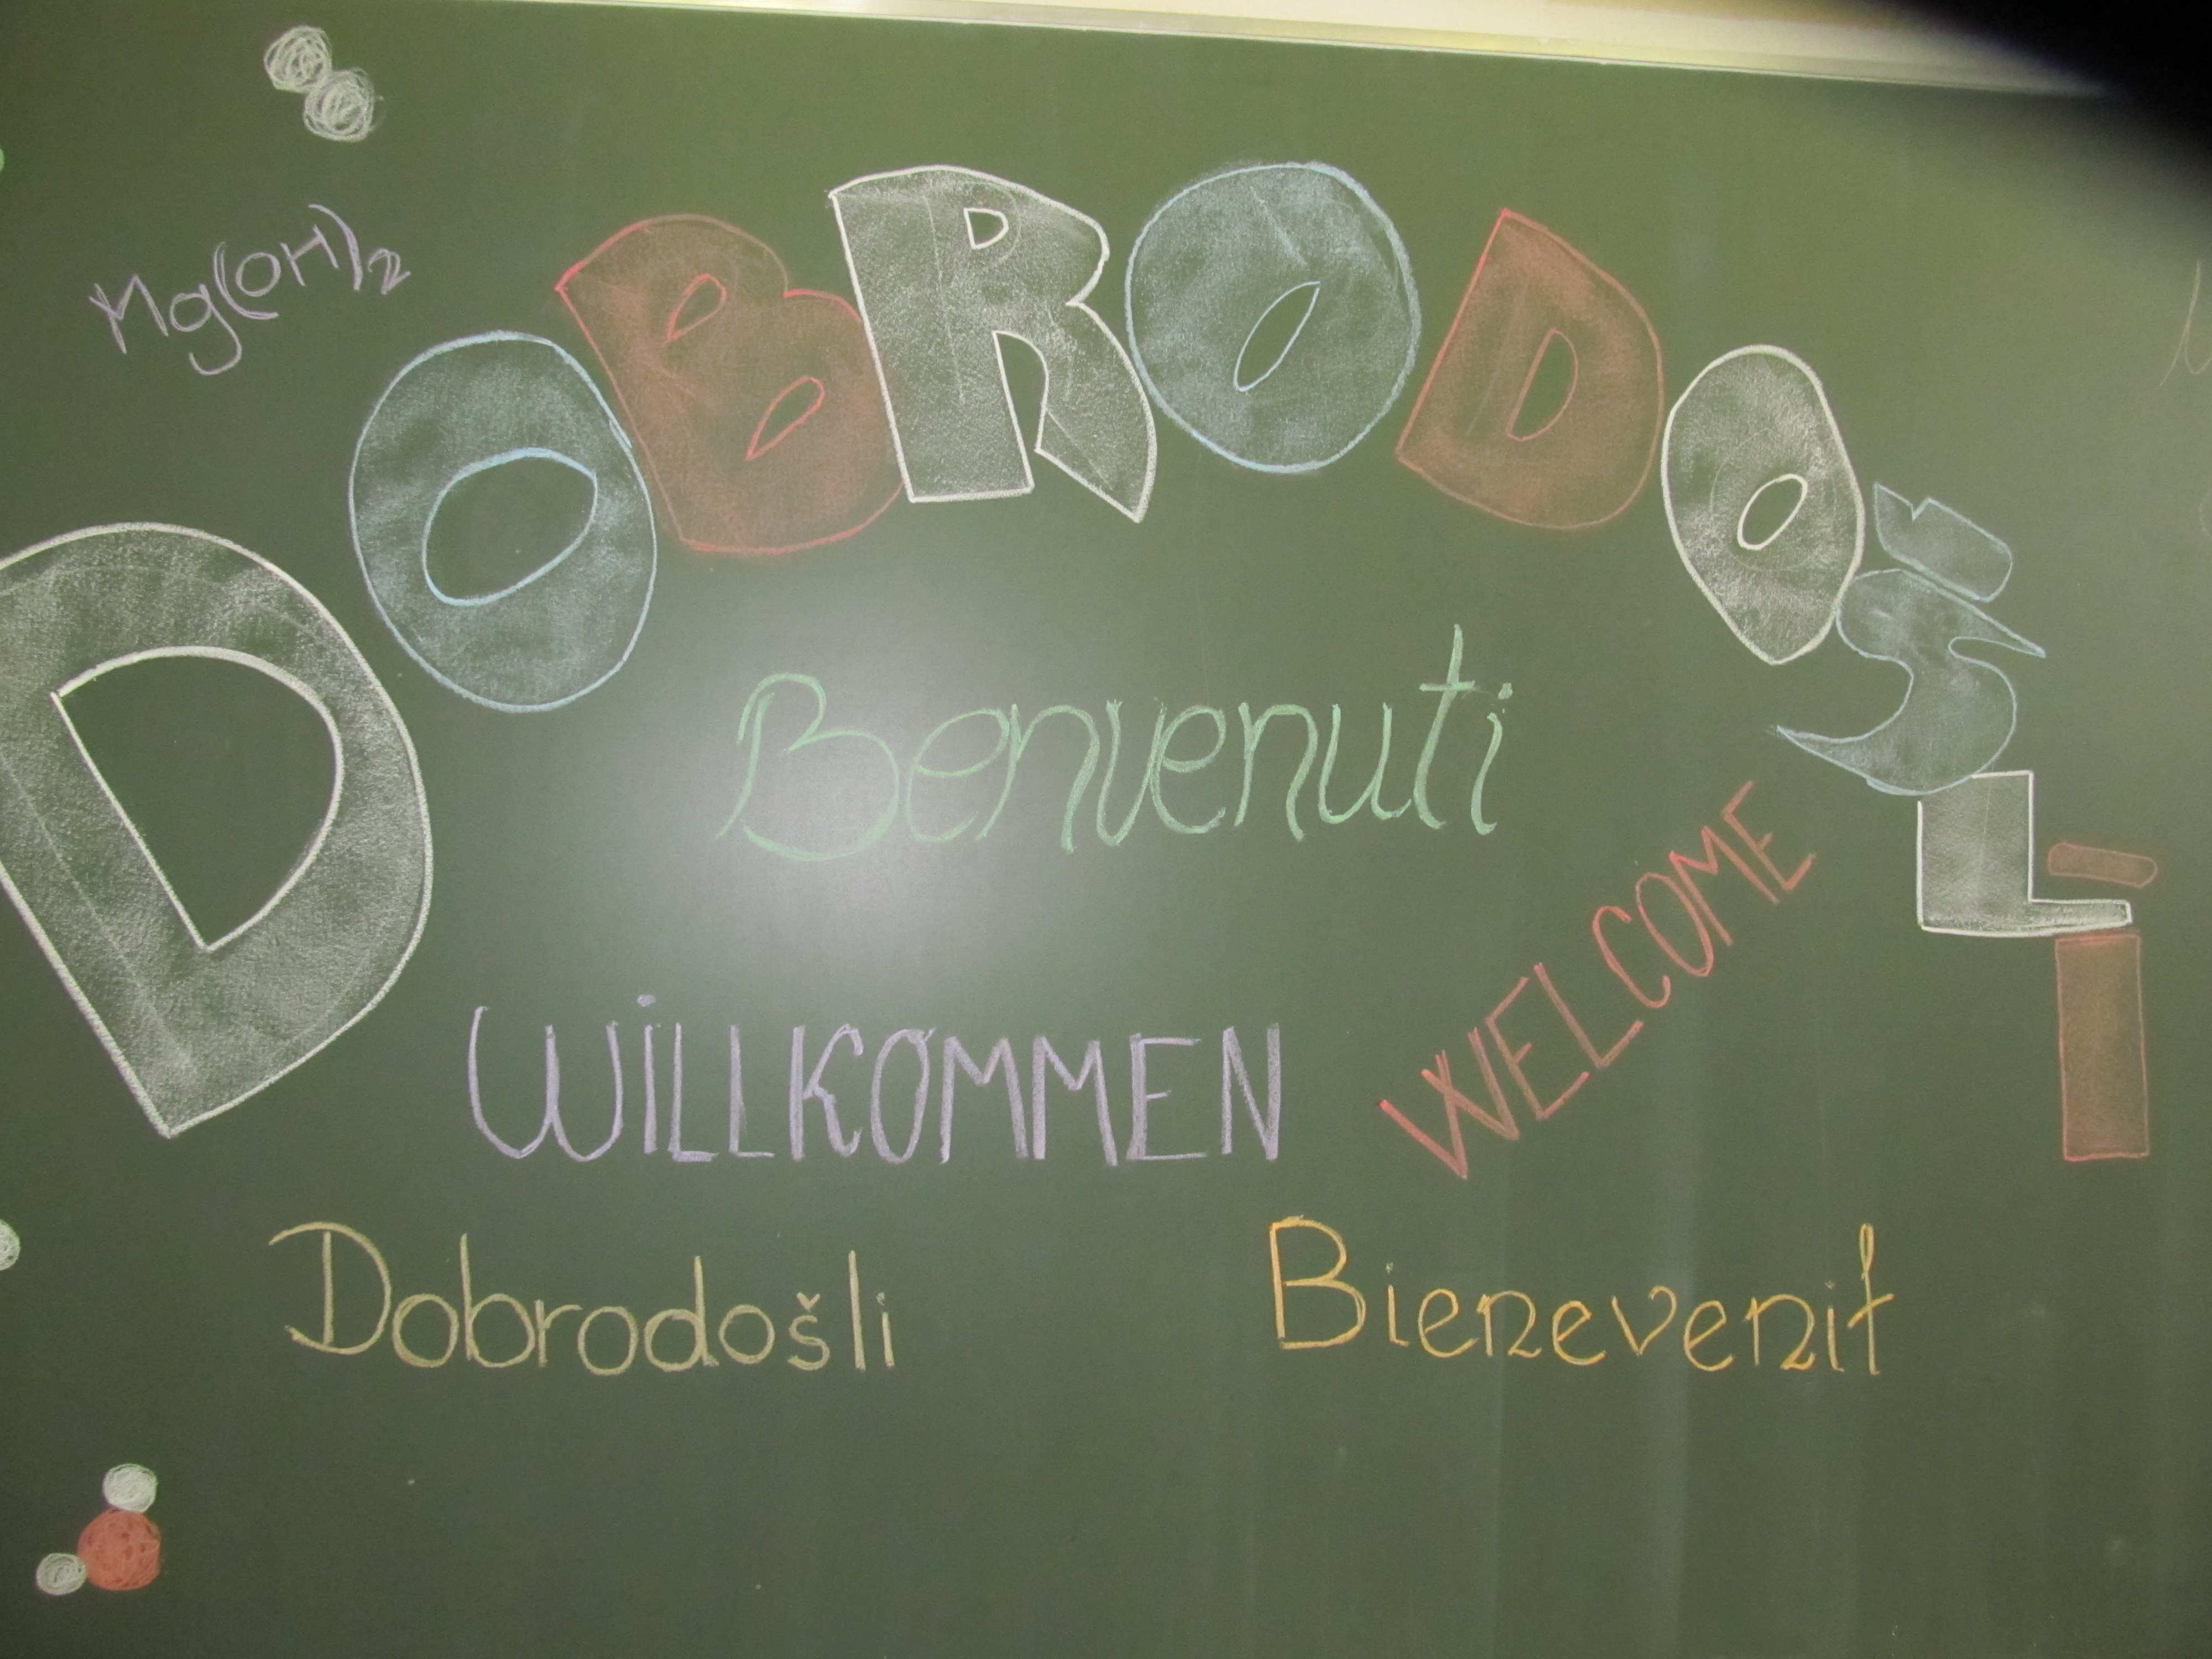 Mg(OH)2
DOBRODOŠLi
Benvenuti
WiLLKOMMEN
WELCOME
Dobrodošli
Bienevenit